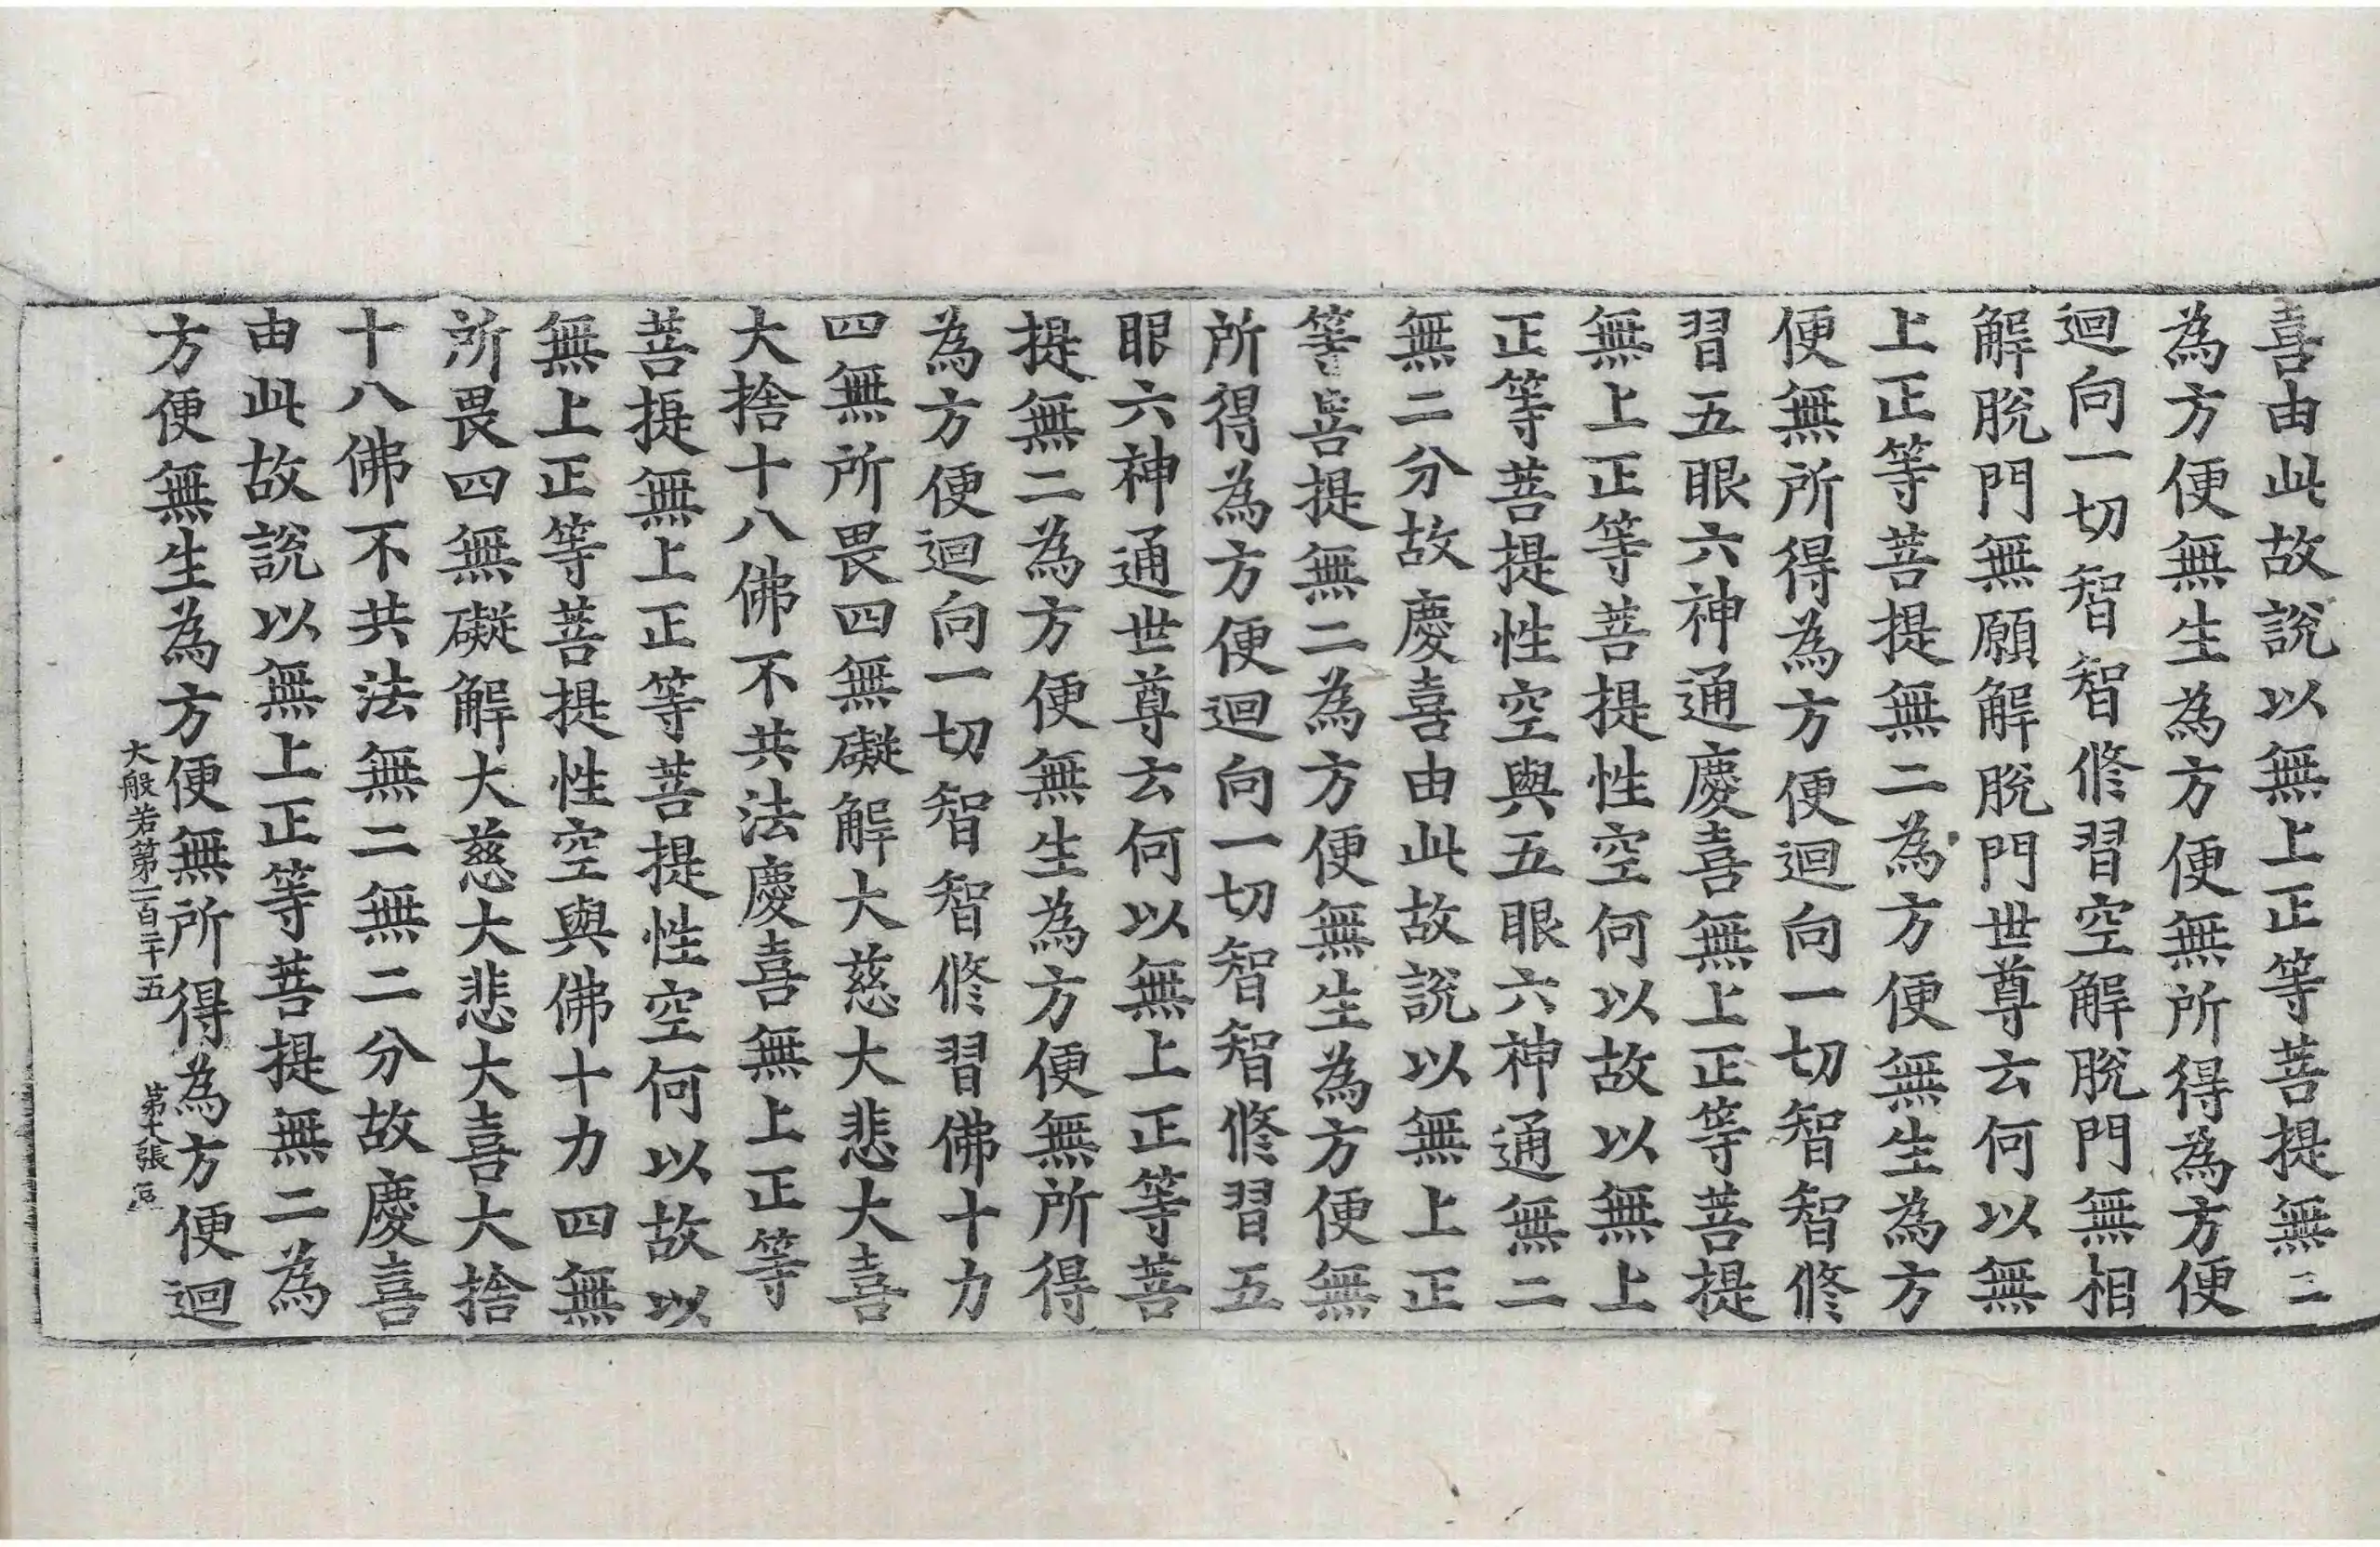 喜由此故說以無上正等菩提無二
為方便無生為方便無所得為方便
迴向一切智智修習空解脫門無相
解脫門無願解脫門世尊云何以無
上正等菩提無二為方便無生為方
便無所得為方便迴向一切智智修
習五眼六神通慶喜無上正等菩提
無上正等菩提性空何以故以無上
正等菩提性空與五眼六神通無二
無二分故慶喜由此故說以無上正
等菩提無二為方便無生為方便無
所得為方便迴向一切智智修習五
眼六神通世尊云何以無上正等菩
提無二為方便無生為方便無所得
為方便迴向一切智智修習佛十力
四無所畏四無礙解大慈大悲大喜
大捨十八佛不共法慶喜無上正等
菩提無上正等菩提性空何以故以
無上正等菩提性空與佛十力四無
所畏四無礙解大慈大悲大喜大捨
十八佛不共法無二無二分故慶喜
由此故說以無上正等菩提無二為
方便無生為方便無所得為方便迴
大般若第一百二十五 第 張